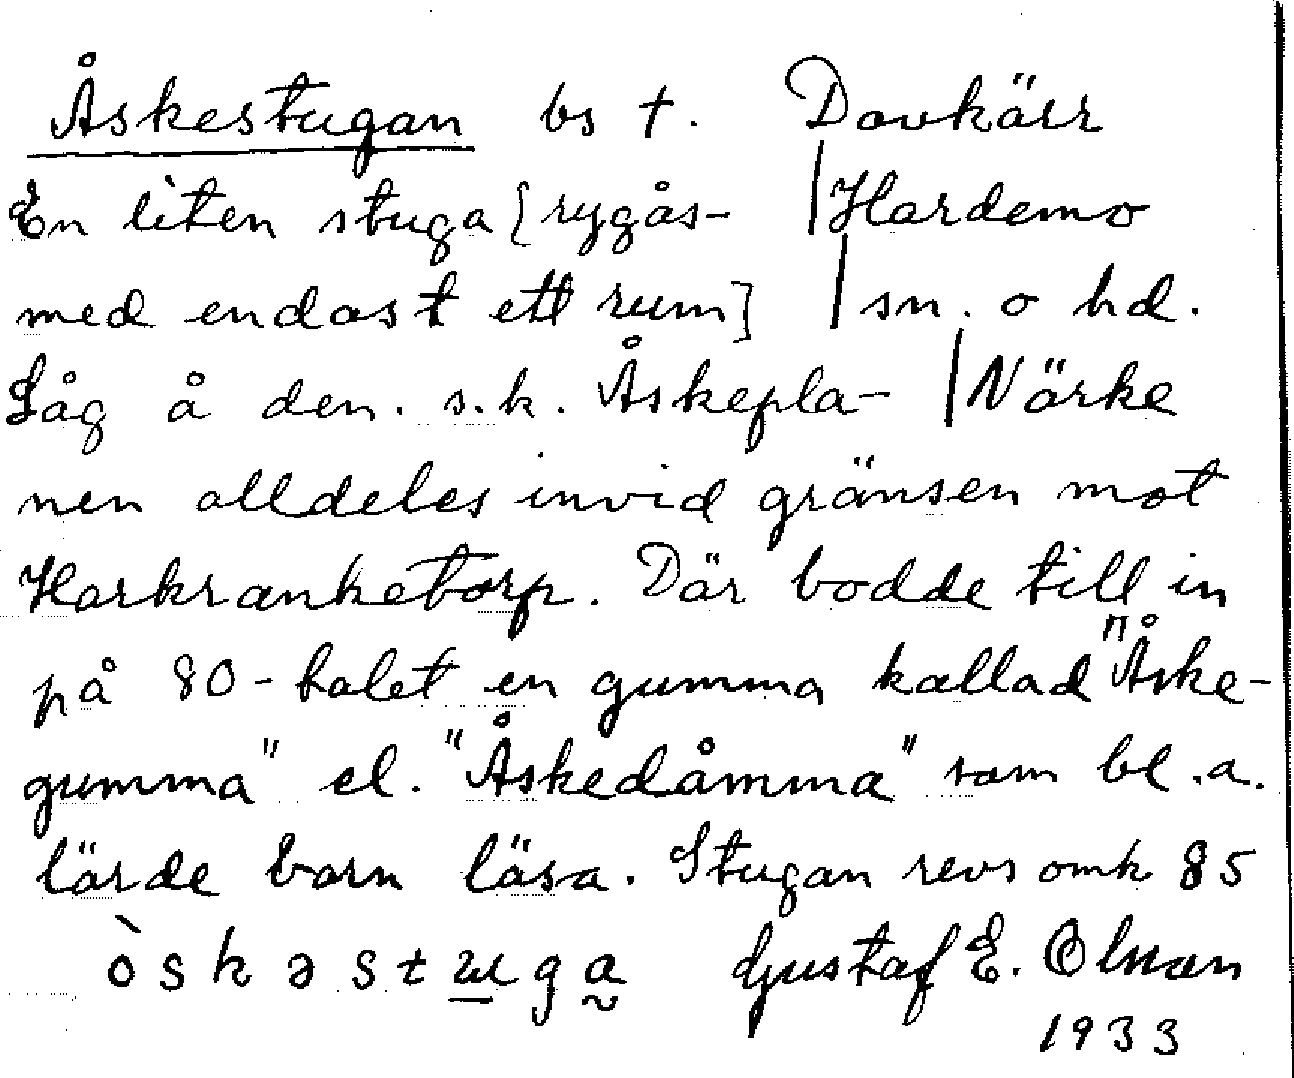 Åskestugan bs †. Dovkärr
En liten stuga [rygås- | Hardemo
med endast ett rum] | sn. o hd.
Låg å den. s.k. Åskepla- | Närke
nen alldeles invid gränsen mot
Harkranketorp. Där bodde till in
på 80-talet en gumma kallad "Åske-
gumma" el. "Åskedåmma" som bl.a.
lärde barn läsa. Stugan revs omk 85
òskəstɯga̰ Gustaf E. Olsson
1933